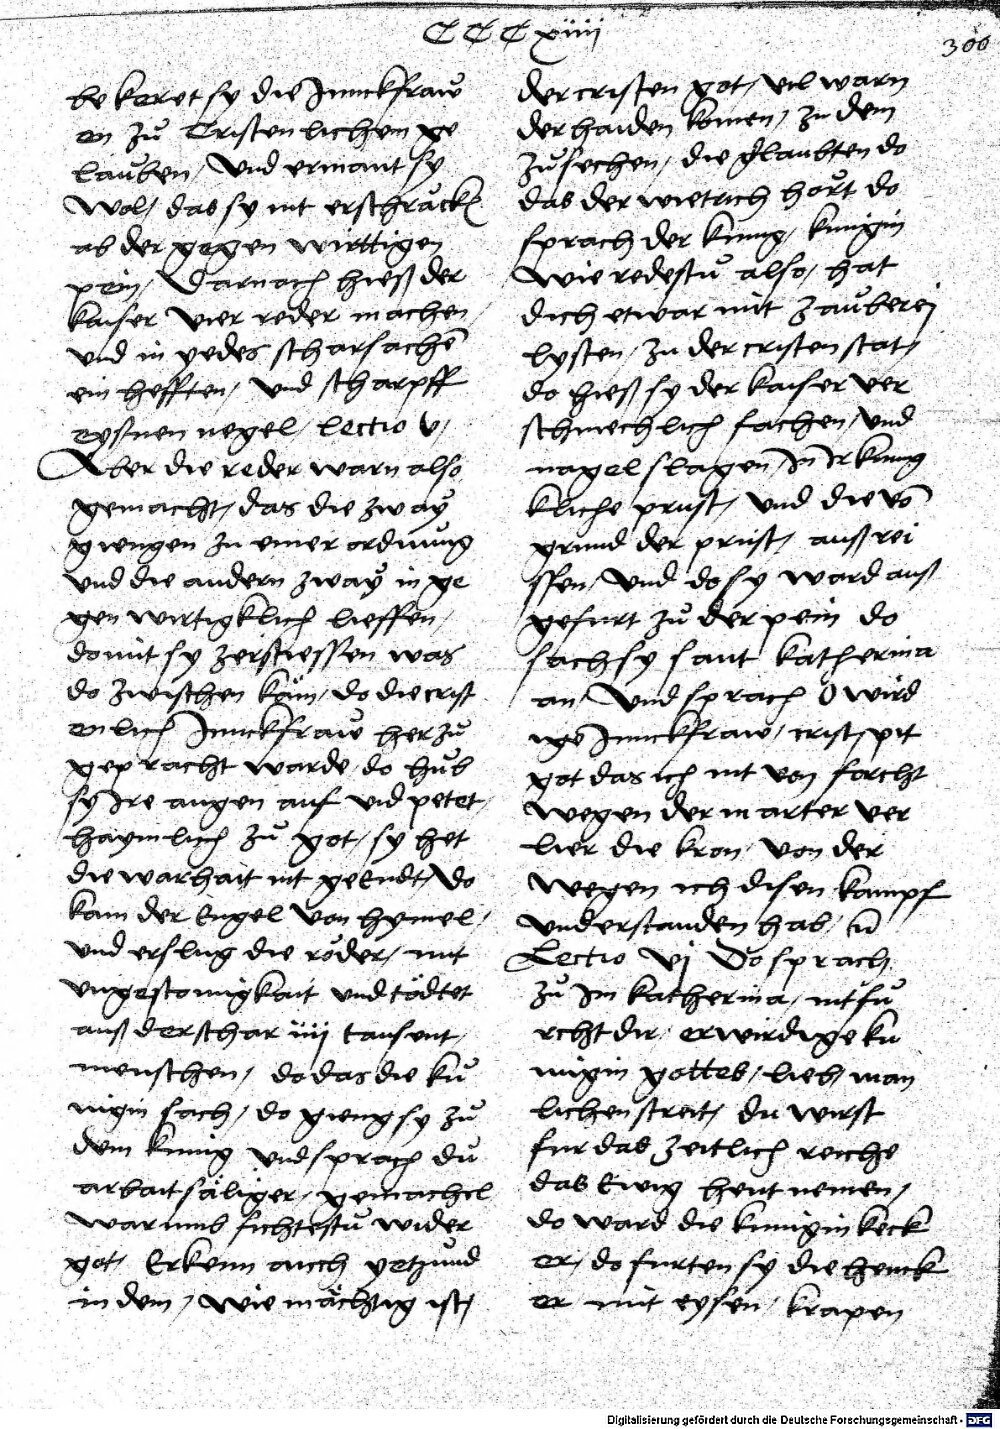 CCCxiiii
300
bekeret sy die Junckfraw
en zu Cristenlichem ge
lauben, Und ermant sy
wol, das sy nit erschräck
ab der gegen wirttigen
pein, Darnach hieß der
kaiser vier reder machen,
und in yedes scharsachen
ein hefften, Und scharpff
eysnen negel, Lectio v,
Aber die reder warn also
gemacht, das die zway
giengen zu einer ordnung
und die andern zway in ge
gen wirtigklich lieffen,
domit sy zerstiessen was
do zwischen käm, do die crist
enlich Junckfraw her zu
gepracht warde, do hub
sy Ire augen auf vnd petet,
haymlich zu got, sy het
die warhait nit geEndt, Do
kam der Engel von hymel,
und erslug die röder, mit
ungestomigkait und tödtet
auß der schar iiij tausent,
menschen, do das die ku
nigin sach, do gieng sy zu
dem kunig und sprach du
arbaitsäliger, gemachel
warumb fichtestu wider
got, Erkenn auch yetzund
in dem, wie mächtig ist,
der cristen got, vil warn
der haiden komen, zu dem
zusechen, die glaubten do
das der wietrich hort do
sprach der kunig, kunigin
wie redestu also, hat
dich etwar mit zauberej
lysten, zu der cristen stat,
do hieß sy der kaiser ver
schmechlich fachen, und
nagel slagen, In Ir kung
kliche prust, Und die von
grund der prust, auß rei
ssen, Und do sy ward auß
gefurt zu der pein do
sach sy sant katherina
an, Und sprach O wird
ige Junckfraw, crist, pit
got das ich nit von forcht
wegen der marter ver
lier die kron, von der
wegen ich disen kampf
understanden hab,
Lectio vj Do sprach
zu Im katherina, nit fu
rcht dir, erwirdige ku
nigin gottes, lieb, man
lichen streit, du wirst
fur das zeitlich reiche
das Ewig heut nemen,
do ward die kunigin keck
er, do furten sy die henck
er mit eysen, krapen
Digitalisierung gefördert durch die Deutsche Forschungsgemeinschaft - DFG